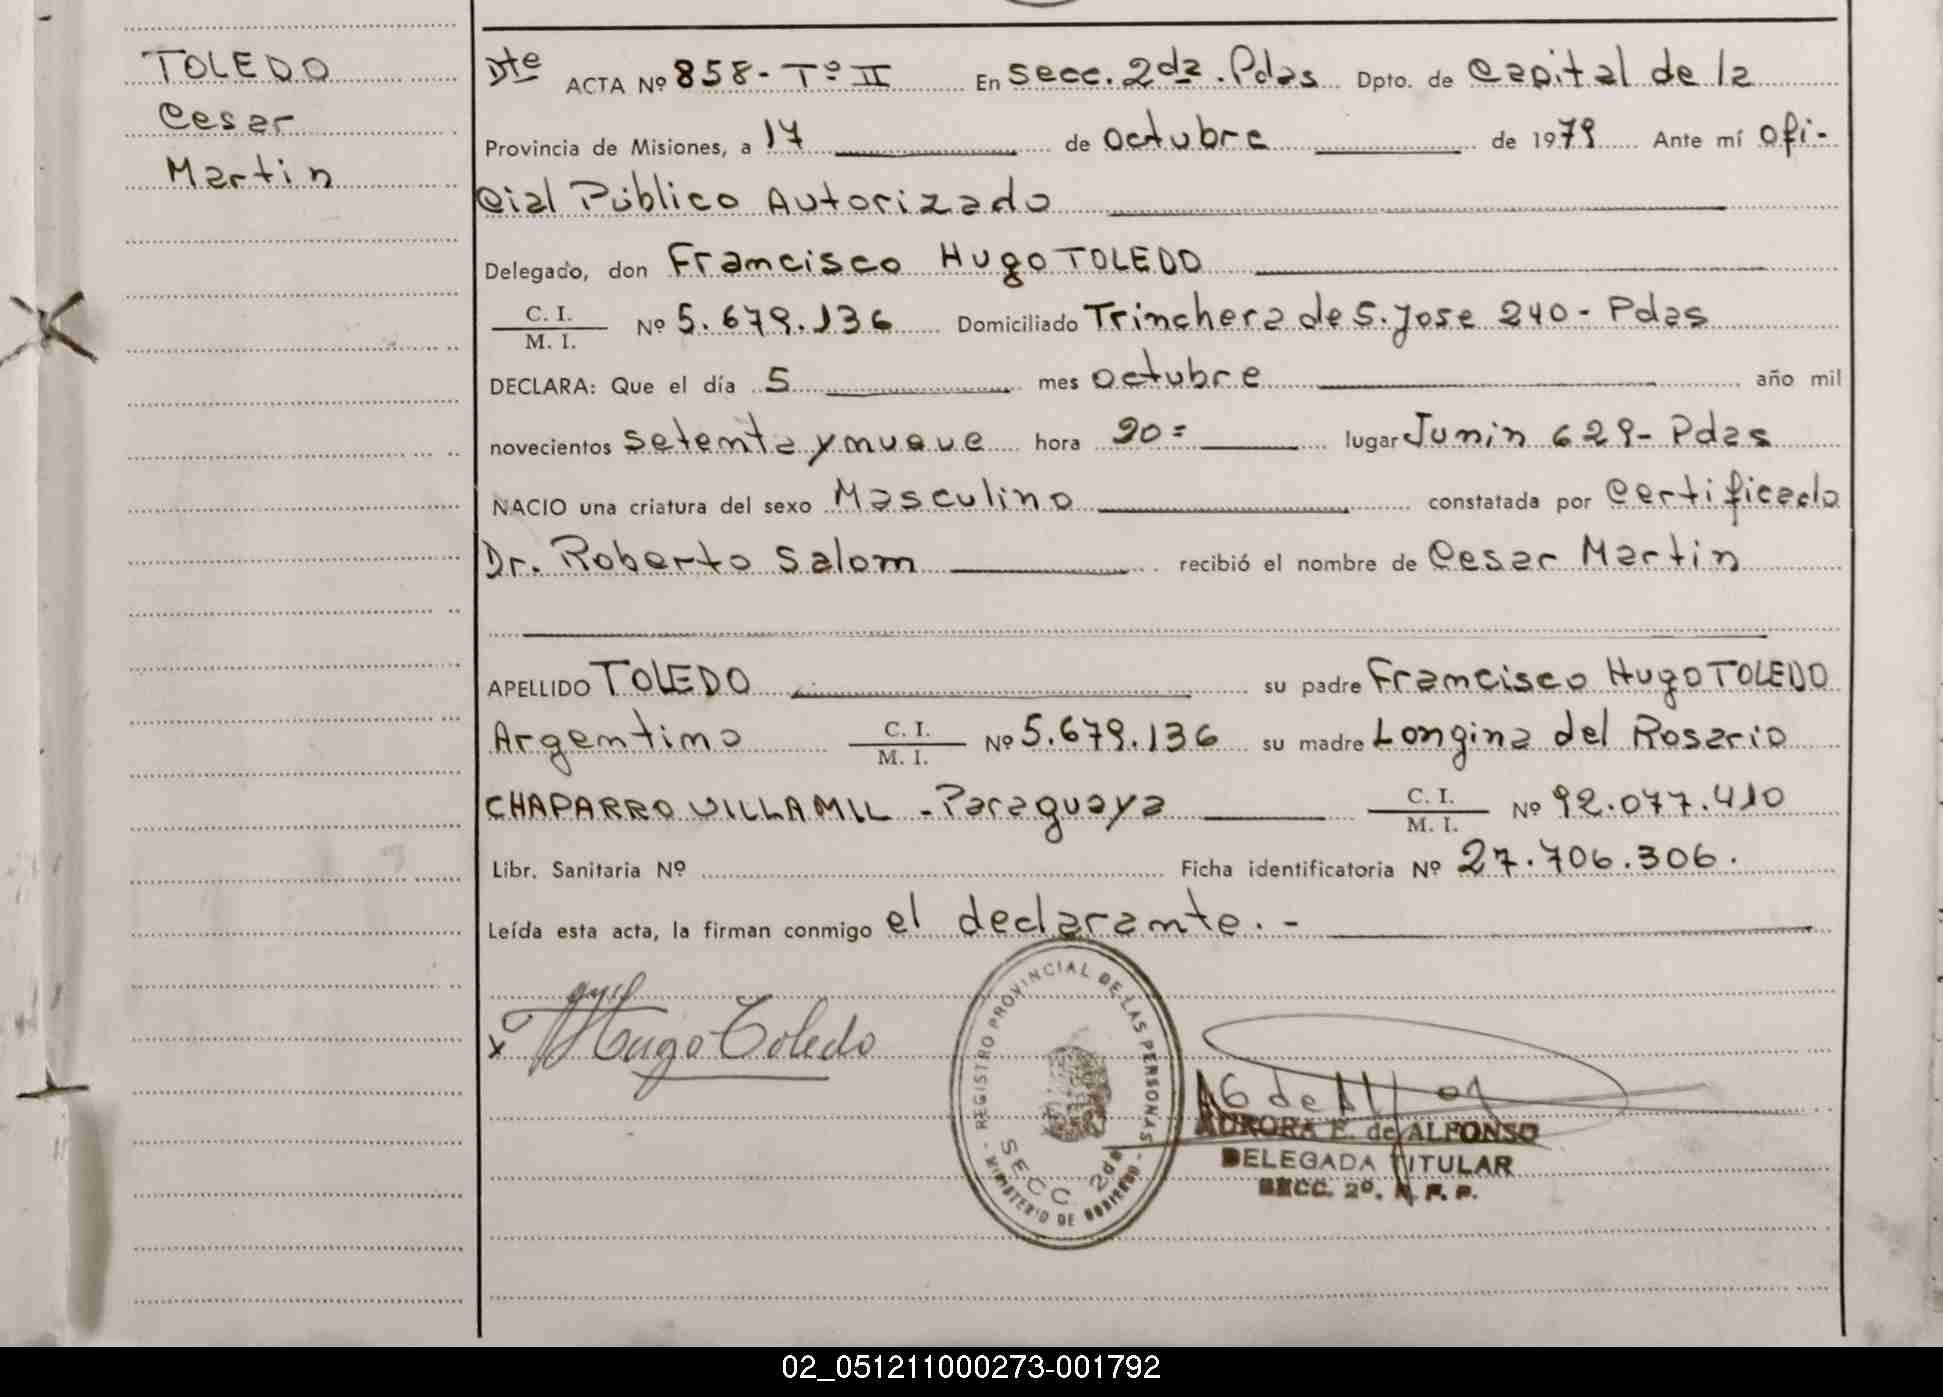 TOLEDO
Cesar
Martin
Dte ACTA Nº 858- Tº II En secc. 2da. Pdas Dpto. de Capital de la
Provincia de Misiones, a 17 de octubre de 1979 Ante mí ofi-
cial Público Autorizado
Delegado, don Francisco Hugo TOLEDO
C. I.
M. I.
Nº 5.679.136 Domiciliado Trinchera de S. Jose 240- Pdas
DECLARA: Que el día 5 mes octubre año mil
novecientos setenta y nueve hora 20= lugar Junin 629- Pdas
NACIO una criatura del sexo Masculino constatada por Certificado
Dr. Roberto Salom recibió el nombre de Cesar Martin
APELLIDO TOLEDO su padre Francisco Hugo TOLEDO
Argentino C. I. M. I. Nº 5.679.136 su madre Longina del Rosario
CHAPARRO VILLAMIL - Paraguaya C. I. M. I. Nº 92.077.410
Libr. Sanitaria Nº Ficha identificatoria Nº 27.706.306.
Leída esta acta, la firman conmigo el declarante. -
x Hugo Toledo
REGISTRO PROVINCIAL DE LAS PERSONAS
SECC 2da
- MINISTERIO DE GOBIERNO -
AURORA E. de ALFONSO
DELEGADA TITULAR
SECC. 2º. R. P. P.
02_051211000273-001792